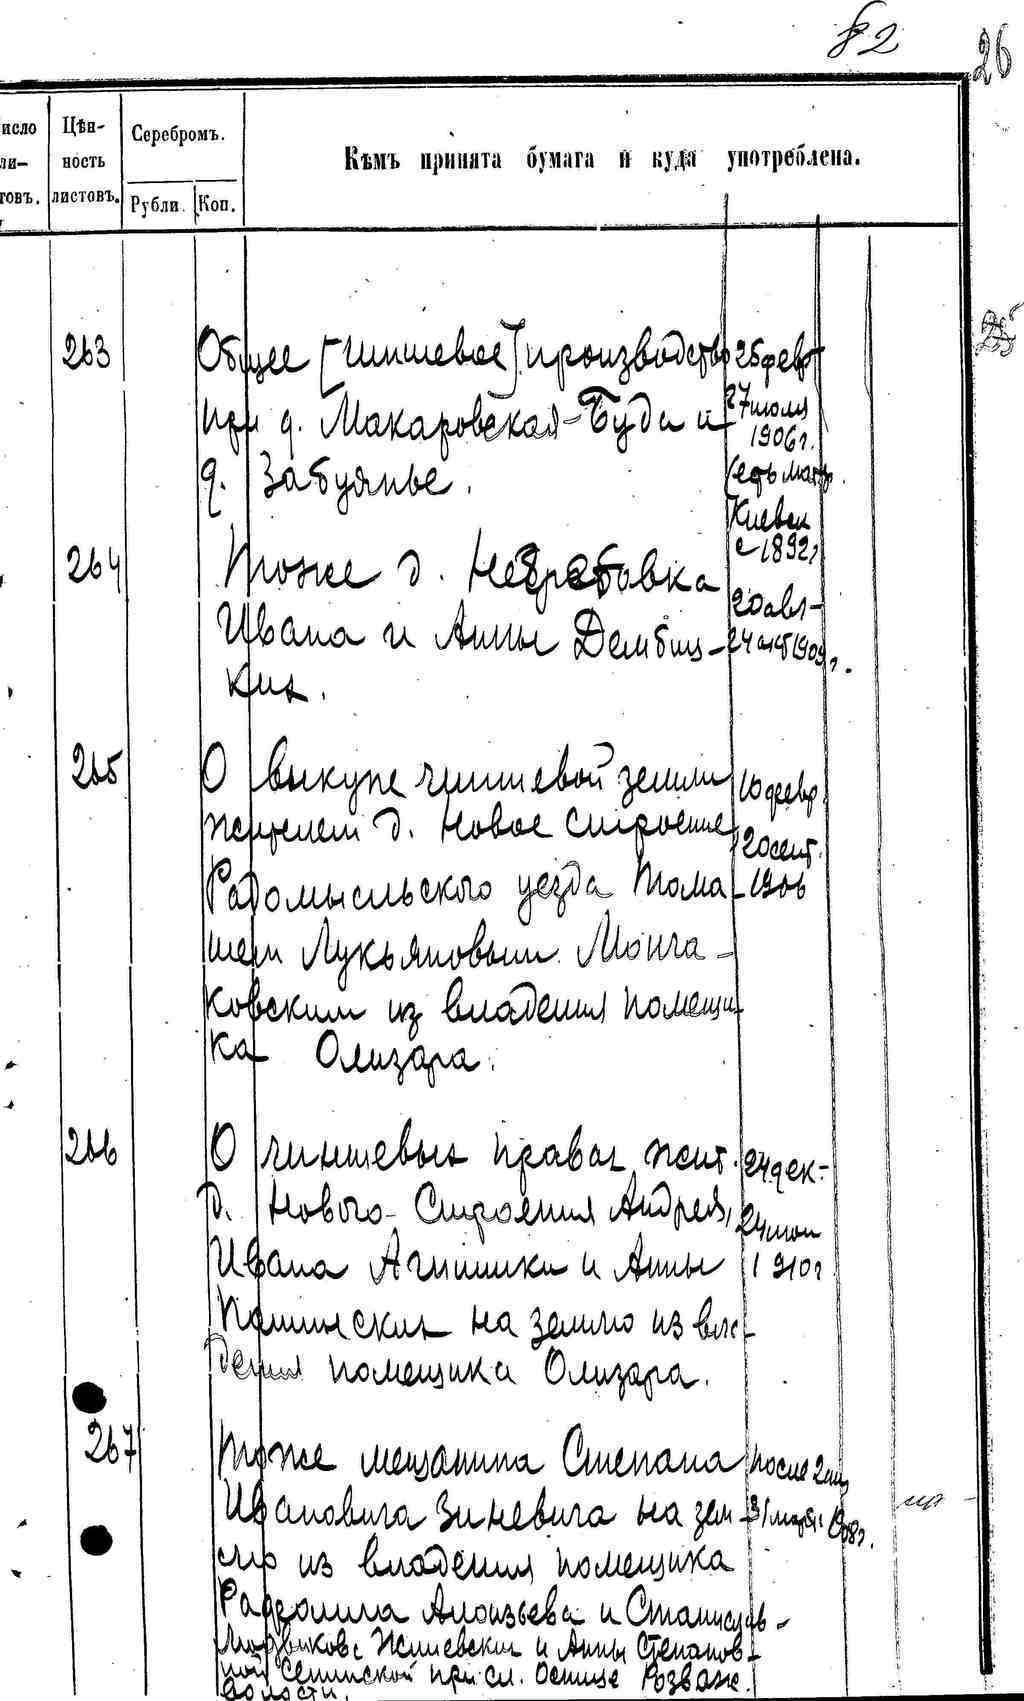 82 26
исло
ли-
товъ.
Цѣн-
ность
листовъ.
Серебромъ.
Рубли. Коп.
Кѣмъ принята бумага и куда употреблена.
263 Общее [чиншевое] производство 25 февр
при д. Макаровская-Буда и 27 июля
1906 г.
д. Забуянье. (есть матер.
Киевск
с 1892 г
264 Тоже д. Небратовка
20 авг-
Ивана и Анны Дембиц- 24 окт 1909 г.
ких.
265 О выкупе чиншевой земли 10 февр.
жителем д. Новое Строение 20 сент.
Радомысльского уезда Тома- 1906
шем Лукьяновым Монча-
ковским из владения помещи-
ка Олизара.
266 О чиншевых правах жит. 24 дек-
д. Нового-Строения Андрея, 24 июн
Ивана Агнишки и Анны 1910 г
на землю из вла-
дения помещика Олизара.
267 Тоже мещанина Степана после 2 ян
Ивановича Зиневича на зем- 31 март 1908 г.
лю из владения помещика
Алоизьева и Станислав-
и Анны Степанов-
ной Сенинской при сл. Розваж.
волости.